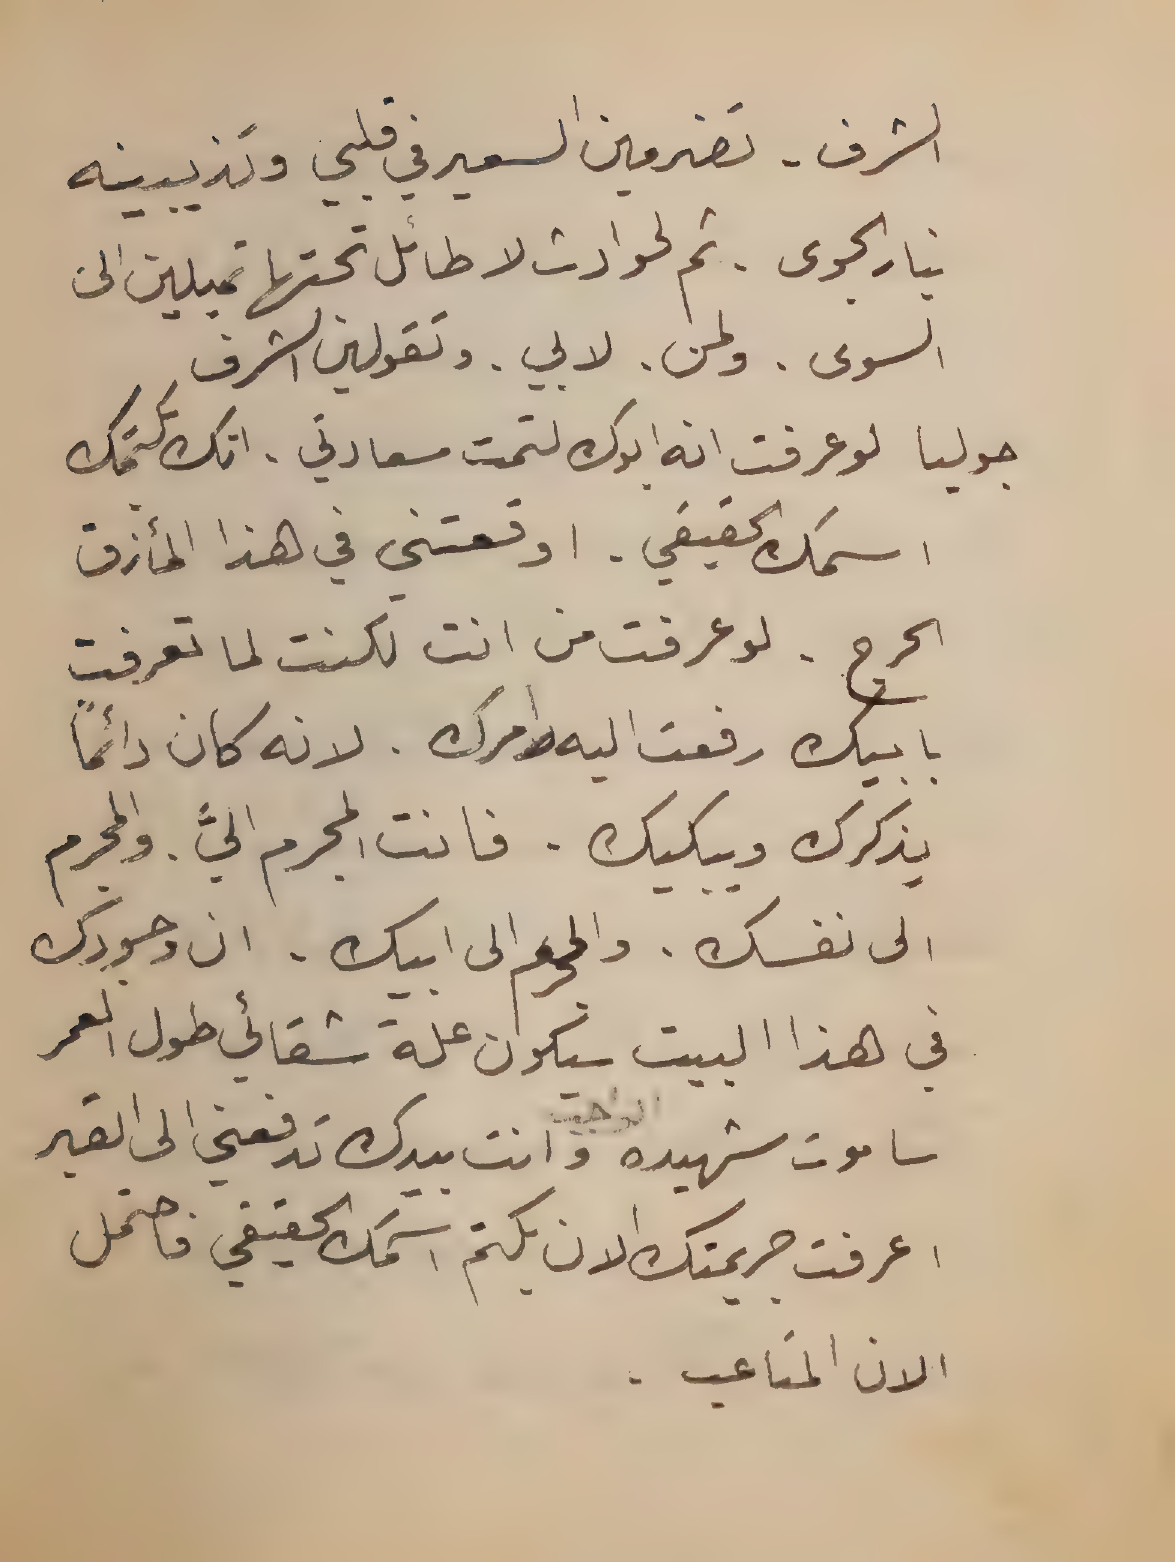 الشرف . تضرمين السعير في قلبي وتذيبينه
بنار الجوى . ثم لحوادث لا طائل تحتها تميلين الى
السوى . ولمن . لابي . وتقولين الشرف
جوليا لو عرفت انه ابوك لتمت سعادتي . انك بكتمك
اسمك الحقيقي . اوقعتني في هذا المأزق
الحرج . لو عرفت من انت لكنت لما تعرفت
بابيك رفعت اليه امرك . لانه كان دائماً
يذكرك ويبكيك . فانت المجرم اليَّ . والمجرم
الى نفسك . والمجرم الى ابيك . ان وجودك
في هذا البيت سيكون علة شقائي طول العمر
ساموت شهيده الواجب وانت بيدك تدفعني الى القبر
اعرفت جريمتك الان بكتم اسمك الحقيقي فاحتمل
الان المتاعب .